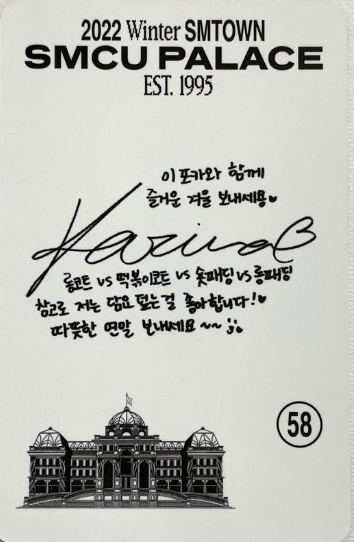 2022 Winter SMTOWN
SMCU PALACE
EST. 1995
이 포카와 함께
즐거운 겨울 보내세용♥
Karina
롱코트 vs 떡볶이코트 vs 숏패딩 vs 롱패딩
참고로 저는 담요 덮는걸 좋아합니다!♥
따뜻한 연말 보내세요~~
58